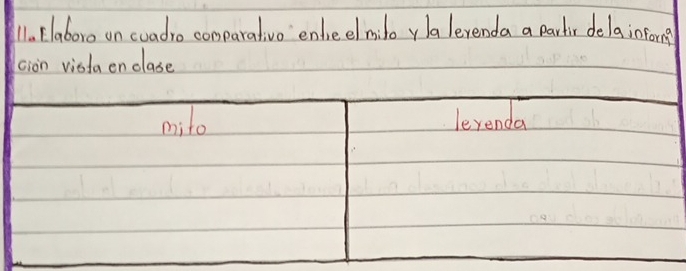 11. Elaboro un cuadro comparativo entre el mito y la leyenda a partir de la informa
ción vista en clase
mito
leyenda